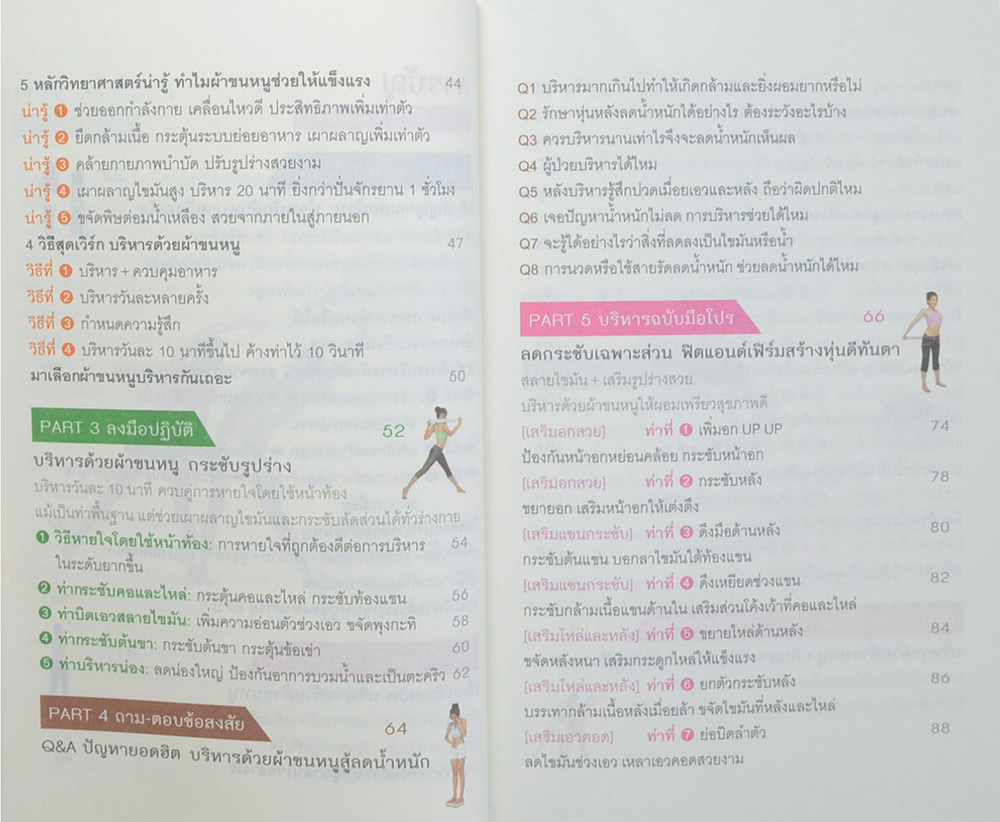 5 หลักวิทยาศาสตร์น่ารู้ ทำไมผ้าขนหนูช่วยให้แข็งแรง 44
น่ารู้ 1 ช่วยออกกำลังกาย เคลื่อนไหวดี ประสิทธิภาพเพิ่มเท่าตัว
น่ารู้ 2 ยืดกล้ามเนื้อ กระตุ้นระบบย่อยอาหาร เผาผลาญเพิ่มเท่าตัว
น่ารู้ 3 คล้ายกายภาพบำบัด ปรับรูปร่างสวยงาม
น่ารู้ 4 เผาผลาญไขมันสูง บริหาร 20 นาที ยิ่งกว่าปั่นจักรยาน 1 ชั่วโมง
น่ารู้ 5 ขจัดพิษต่อมน้ำเหลือง สวยจากภายในสู่ภายนอก
4 วิธีสุดเวิร์ก บริหารด้วยผ้าขนหนู 47
วิธีที่ 1 บริหาร + ควบคุมอาหาร
วิธีที่ 2 บริหารวันละหลายครั้ง
วิธีที่ 3 กำหนดความรู้สึก
วิธีที่ 4 บริหารวันละ 10 นาทีขึ้นไป ค้างท่าไว้ 10 วินาที
มาเลือกผ้าขนหนูบริหารกันเถอะ 50
PART 3 ลงมือปฏิบัติ 52
บริหารด้วยผ้าขนหนู กระชับรูปร่าง
บริหารวันละ 10 นาที ควบคู่การหายใจโดยใช้หน้าท้อง
แม้เป็นท่าพื้นฐาน แต่ช่วยเผาผลาญไขมันและกระชับสัดส่วนได้ทั่วร่างกาย
1 วิธีหายใจโดยใช้หน้าท้อง: การหายใจที่ถูกต้องดีต่อการบริหาร 54
ในระดับยากขึ้น
2 ท่ากระชับคอและไหล่: กระตุ้นคอและไหล่ กระชับท้องแขน 56
3 ท่าบิดเอวสลายไขมัน: เพิ่มความอ่อนตัวช่วงเอว ขจัดพุงกะทิ 58
4 ท่ากระชับต้นขา: กระชับต้นขา กระตุ้นข้อเข่า 60
5 ท่าบริหารน่อง: ลดน่องใหญ่ ป้องกันอาการบวมน้ำและเป็นตะคริว 62
PART 4 ถาม-ตอบข้อสงสัย 64
Q&A ปัญหายอดฮิต บริหารด้วยผ้าขนหนูสู้ลดน้ำหนัก
Q1 บริหารมากเกินไปทำให้เกิดกล้ามและยิ่งผอมยากหรือไม่
Q2 รักษาหุ่นหลังลดน้ำหนักได้อย่างไร ต้องระวังอะไรบ้าง
Q3 ควรบริหารนานเท่าไรจึงจะลดน้ำหนักเห็นผล
Q4 ผู้ป่วยบริหารได้ไหม
Q5 หลังบริหารรู้สึกปวดเมื่อยเอวและหลัง ถือว่าผิดปกติไหม
Q6 เจอปัญหาน้ำหนักไม่ลด การบริหารช่วยได้ไหม
Q7 จะรู้ได้อย่างไรว่าสิ่งที่ลดลงเป็นไขมันหรือน้ำ
Q8 การนวดหรือใช้สายรัดลดน้ำหนัก ช่วยลดน้ำหนักได้ไหม
PART 5 บริหารฉบับมือโปร 66
ลดกระชับเฉพาะส่วน ฟิตแอนด์เฟิร์มสร้างหุ่นดีทันตา
สลายไขมัน + เสริมรูปร่างสวย
บริหารด้วยผ้าขนหนูให้ผอมเพรียวสุขภาพดี
[เสริมอกสวย] ท่าที่ 1 เพิ่มอก UP UP 74
ป้องกันหน้าอกหย่อนคล้อย กระชับหน้าอก
[เสริมอกสวย] ท่าที่ 2 กระชับหลัง 78
ขยายอก เสริมหน้าอกให้เต่งตึง
[เสริมแขนกระชับ] ท่าที่ 3 ดึงมือด้านหลัง 80
กระชับต้นแขน บอกลาไขมันใต้ท้องแขน
[เสริมแขนกระชับ] ท่าที่ 4 ดึงเหยียดช่วงแขน 82
กระชับกล้ามเนื้อแขนด้านใน เสริมส่วนโค้งเว้าที่คอและไหล่
[เสริมไหล่และหลัง] ท่าที่ 5 ขยายไหล่ด้านหลัง 84
ขจัดหลังหนา เสริมกระดูกไหล่ให้แข็งแรง
[เสริมไหล่และหลัง] ท่าที่ 6 ยกตัวกระชับหลัง 86
บรรเทากล้ามเนื้อหลังเมื่อยล้า ขจัดไขมันที่หลังและไหล่
[เสริมเอวคอด] ท่าที่ 7 ย่อบิดลำตัว 88
ลดไขมันช่วงเอว เหลาเอวคอดสวยงาม